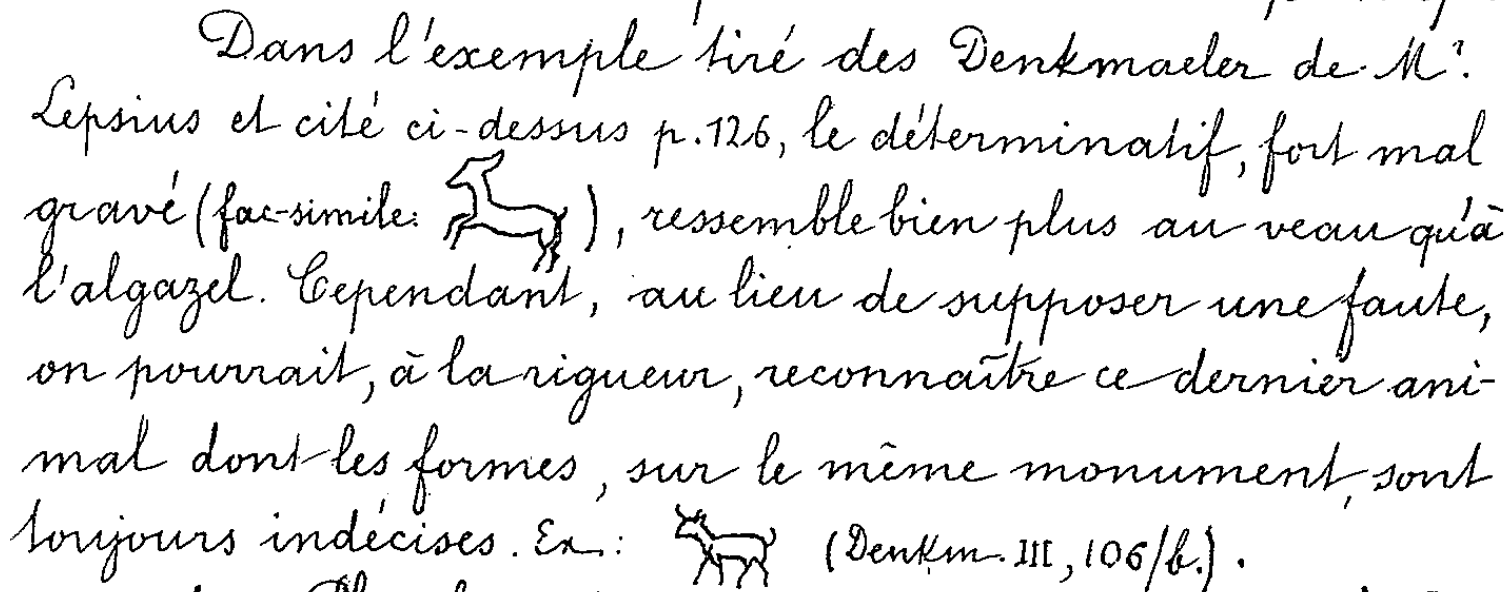 Dans l'exemple tiré des Denkmaeler de Mr.
Lepsius et cité ci-dessus p. 126, le déterminatif, fort mal
gravé (fac-simile: ), ressemble bien plus au veau qu'à
l'algazel. Cependant, au lieu de supposer une faute,
on pourrait, à la rigueur, reconnaître ce dernier ani-
mal dont les formes, sur le même monument, sont
toujours indécises. Ex.: (Denkm. III, 106/b.).